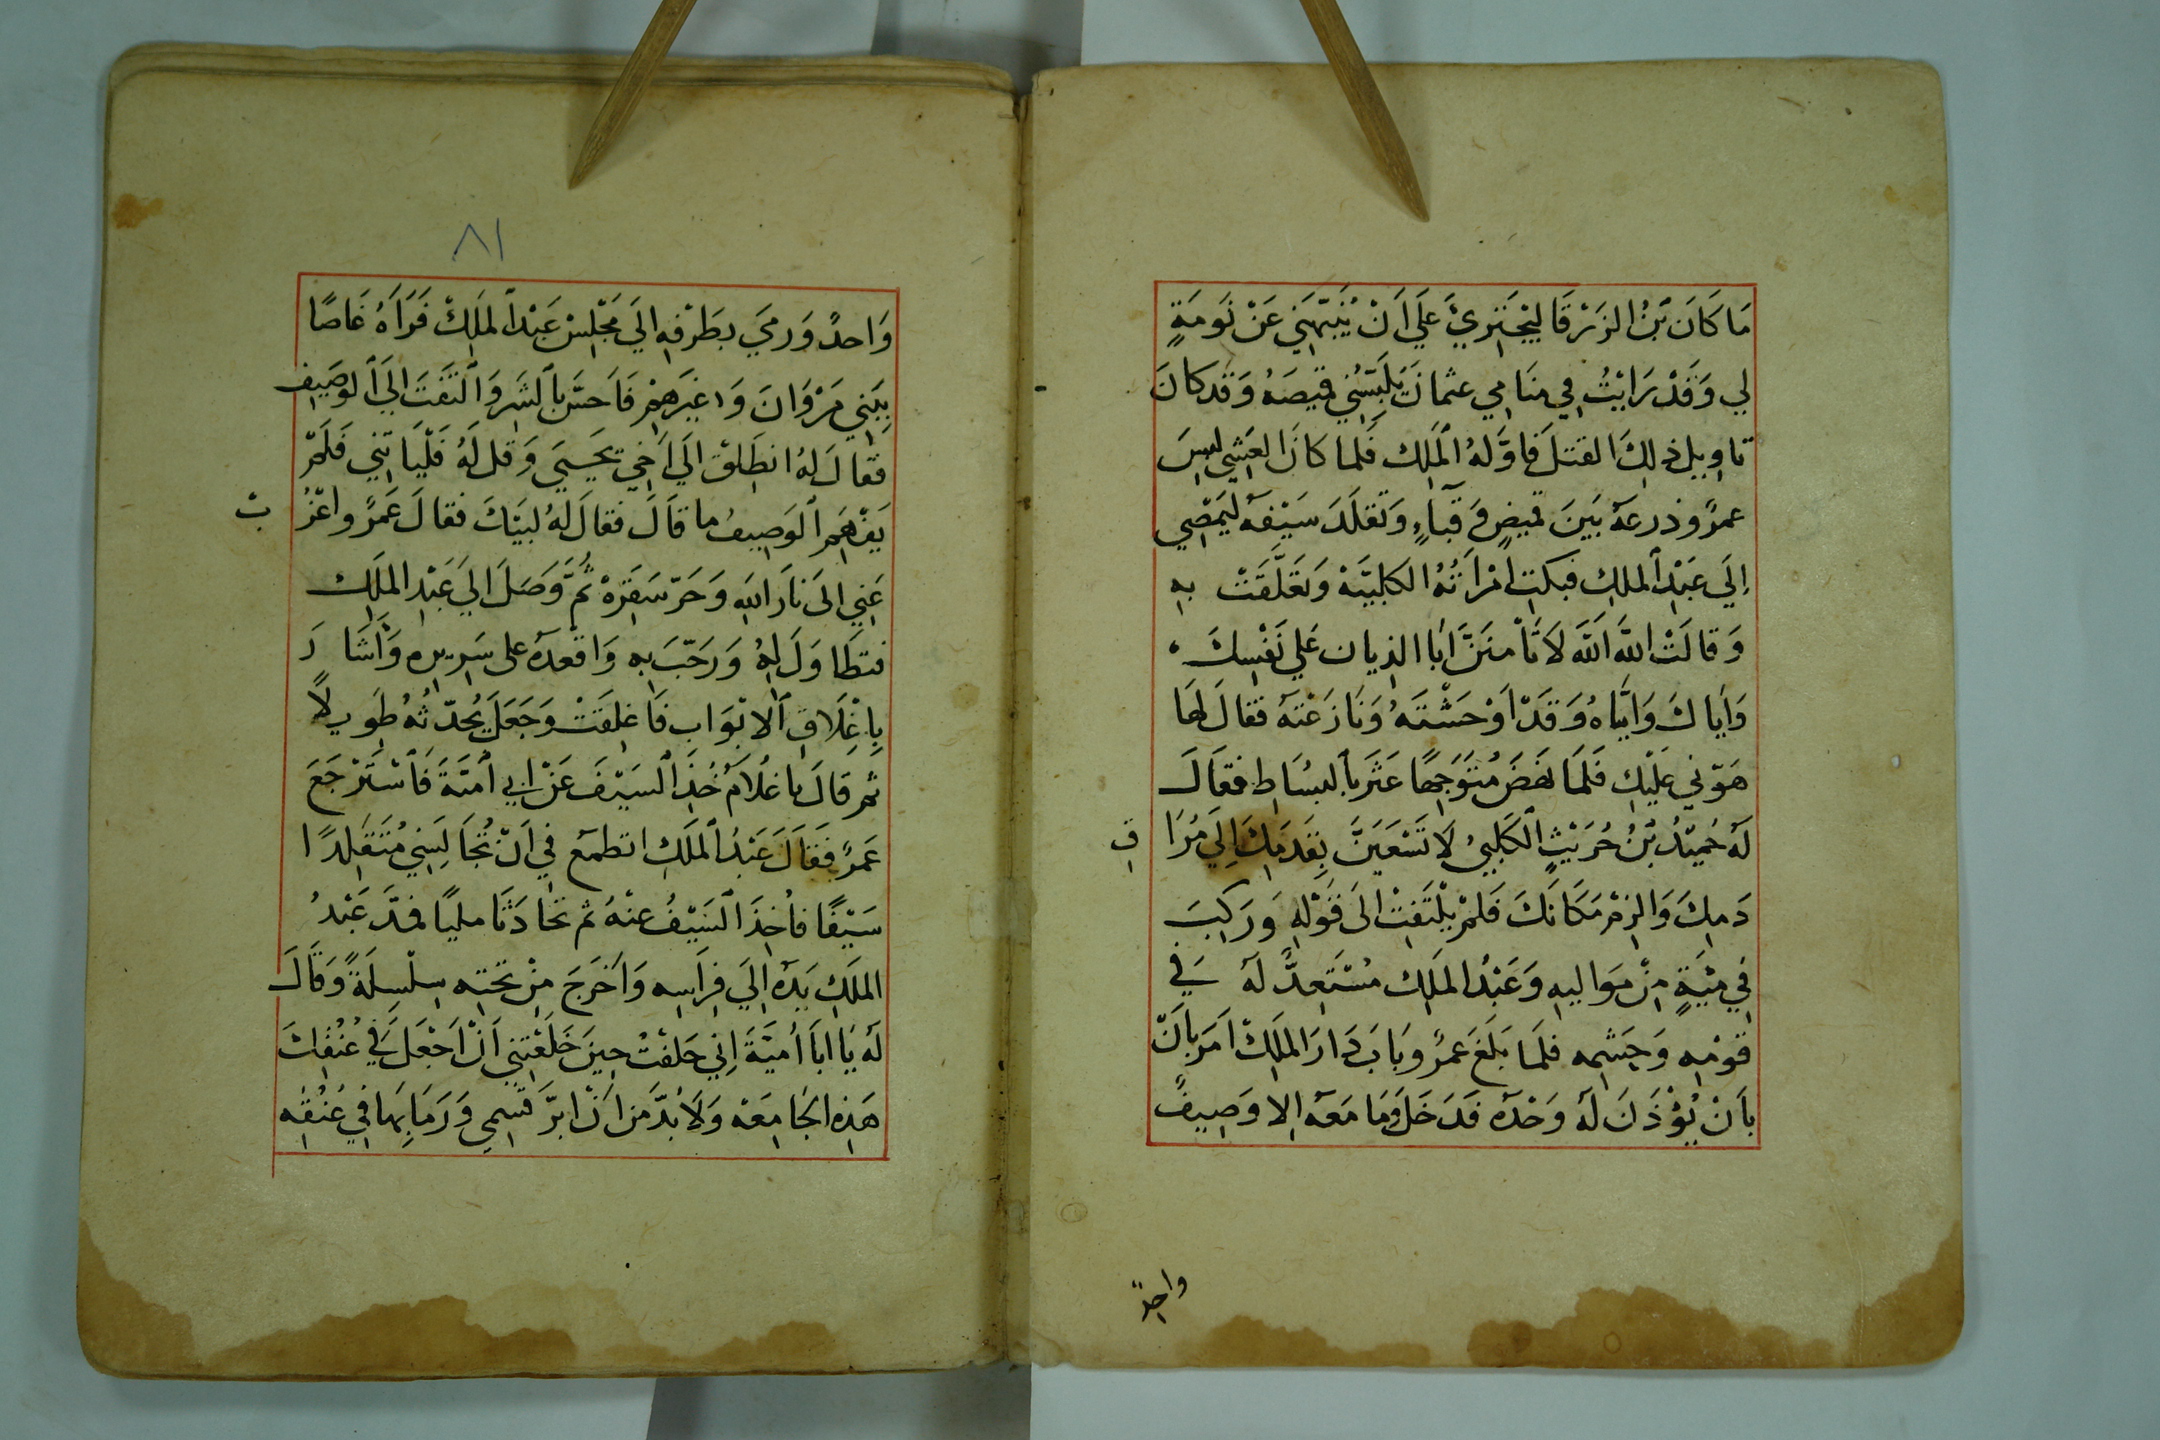 مَا كَانَ بْنُ الزَرْقَا ليَجْتَرِئَ عَلَى اَنْ يُنَبّهَنِي عَنْ نَومَةٍ
لي وَقَدْ رَايْتُ فِي منَامِي عثمانَ يُلَبِّسُنِي قميصَهُ وَقدكانَ
تاويل ذلِكَ القتلَ فاوَّلهُ الْمَلِك فَلما كانَ العَشِي لبِسَ
عمرٌو ذرعهُ بَينَ قميصٍ وَ قَبآءٍ وَتَقلَدَ سَيْفهُ ليَمْضِي
اِلَي عَبْدِ الملكِ فبكت امْرَاَتُهُ الكلبِيّةْ وَتَعَلَّقَتْ بهِ
وَ قالَتْ اللهَ اَللهَ لاَ تَاْ منَنَّ اَبَا الذيان عَلي نَفْسِكَ
وَاِيَاكَ وَايَّاهُ وَقَدْ اَوْحَشْتَهُ وَنَازَعْتَهُ فقالَ لَهَا
هَوّنِي عَلَيْكِ فَلَمَا نهَضَ مُتَوَجِهًا عَثَرَ بالبسَاطِ فقَالَ
لهُ حُمَيْدُ بْنُ حُرَيْثٍ الْكَلبيُ لاَ تَسْعَيَنَّ بقَدَمِكَ اِلَي مُرَا
ق
دَمِكَ وَالزمْ مَكَانَكَ فَلمْ يلْتَفِتْ الَى قَوْلِهِ وَرَكِبَ
فِي مِيَّةٍ مِنْ مَوَاليهِ وَعَبْدُ المَلِكِ مسْتَعِدٌّ لَهُ في
قومِهِ وَحِشَمِه فلَمَا بَلَغَ عمرُو بَابَ دَارَ المَلِكْ اَمَرَ بَاَنْ
بأنْ يُؤْذَنَ لَهُ وَحْدَهُ فَدَخَلَ وَمَا مَعَهُ اِلا وَصِيفٌ
واحِدٌ
٨١
وَاحدٌ وَرمَي بطَرْفهِ الَي مَجْلِسْ عَبْدِ الْمَلِكْ فَرَاَهُ غَاصًا
بِبَنِي مَرْوَانَ وَ غيَرهِمْ فَاَحسَّ بالشَرِ وَالْتَفَتَ الَي الوصَيِف
فقَالَ لهُ انطَلِقْ الَي اَخِي يَحيَي وَقل لَهُ فَلْيَاتِنِي فَلَمْ
يَفْهَمِ الوَصِيفُ ما قَالَ فقالَ لهُ لبيَكَ فقالَ عَمرٌو اعْزُ
ب
عَنِي الَى نَارَ اللهِ وَحَرّ سَقَرهْ ثُمّ وَصَلَ الَي عَبْدِ المَلِك
فتطَاوَلَ لهُ وَرَحّبَ بهِ وَاقْعدهُ على سَرِيرِهِ وَاَشَارَ
بِاِغْلَاقِ الابْوَابِ فَاغلِقَتْ وَجَعَلَ يُحَدّثهُ طَويلاً
ثم قَالَ يا غلَامُ خُذِ السَيْفَ عَنْ ابي اُميَّة فَاسْتَرْجَعَ
عَمرٌ فَقَالَ عَبْدُ الْمَلِكِ اتطمَع في اَنْ تُجَالِسَنِي مُتَقَلِدًا
سَيْفًا فأُخِذَ السَيْفُ عنهُ ثم تحَادَثَا مليًا فمدَّ عَبْدُ
المَلِكِ يَدهُ اِلَي فِرَاسِه وَاَخرَجَ مِنْ تحتِه سِلْسِلَةً وَقَالَ
لَهُ يَا ابَا اُميَّةَ اِنِي حَلفتْ حِينَ خَلَعْتِنِي اَنْ اَجْعَلَ في عُنُقِكَ
هَذِهِ الجَامِعَهْ وَلَا بُدَّ مِن اَنْ ابرَّ قسَمِي وَرَمَا بِهَا فِي عُنُقِهِ